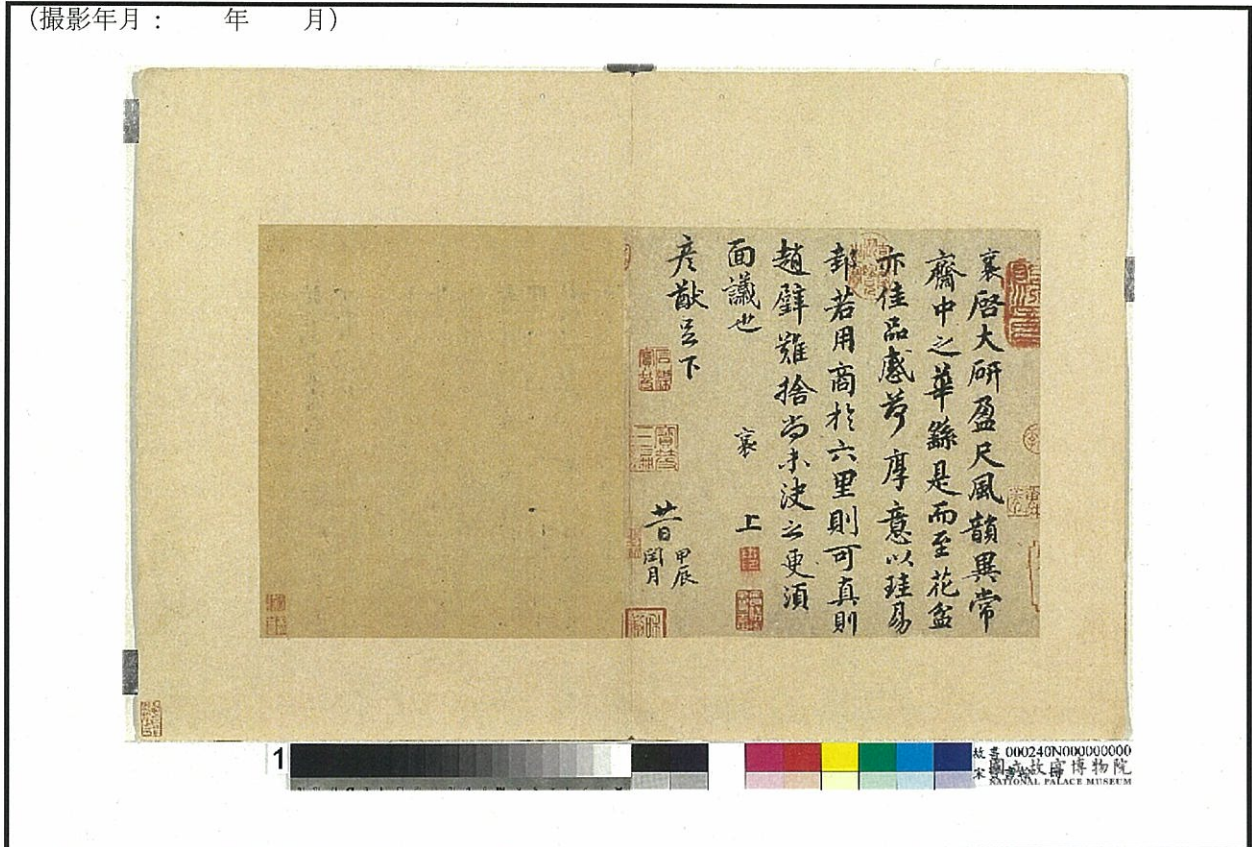 (撮影年月： 年 月)
襄啓大研盈尺風韻異常
齋中之華繇是而至花盆
亦佳品感荷厚意以珪易
邽若用商於六里則可真則
趙璧難捨尚未決之更須
面議也 襄 上
彦猷足下
廿一日甲辰
閏月
1
故書 000240N000000000
國立故宮博物院
NATIONAL PALACE MUSEUM